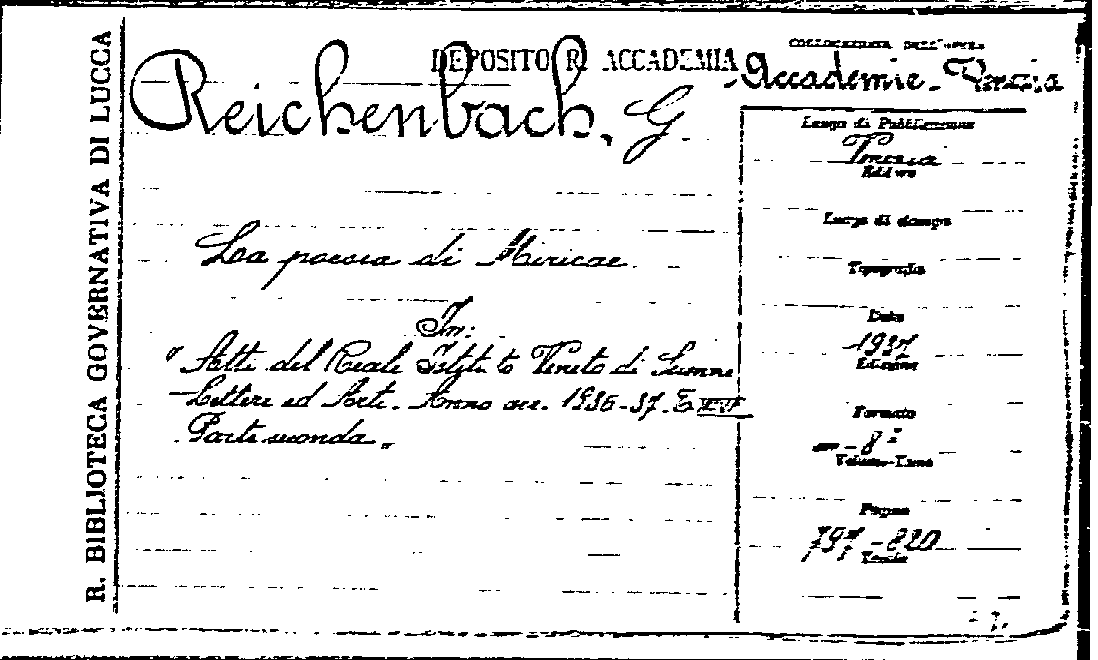 R. BIBLIOTECA GOVERNATIVA DI LUCCA
DEPOSITO R. ACCADEMIA
Reichenbach, G.
La poesia di Miricae
In:
"Atti del Reale Istituto Veneto di Scienze
Lettere ed Arti. Anno acc. 1936-37. XCVI
Parte seconda"
COLLOCAZIONE DELL'OPERA
Accademie - Venezia
Luogo di Pubblicazione
Venezia
Editore
Luogo di stampa
Tipografia
Data
1937
Edizione
Formato
8°
Volume-Tomo
Pagine
797-820
Tavole